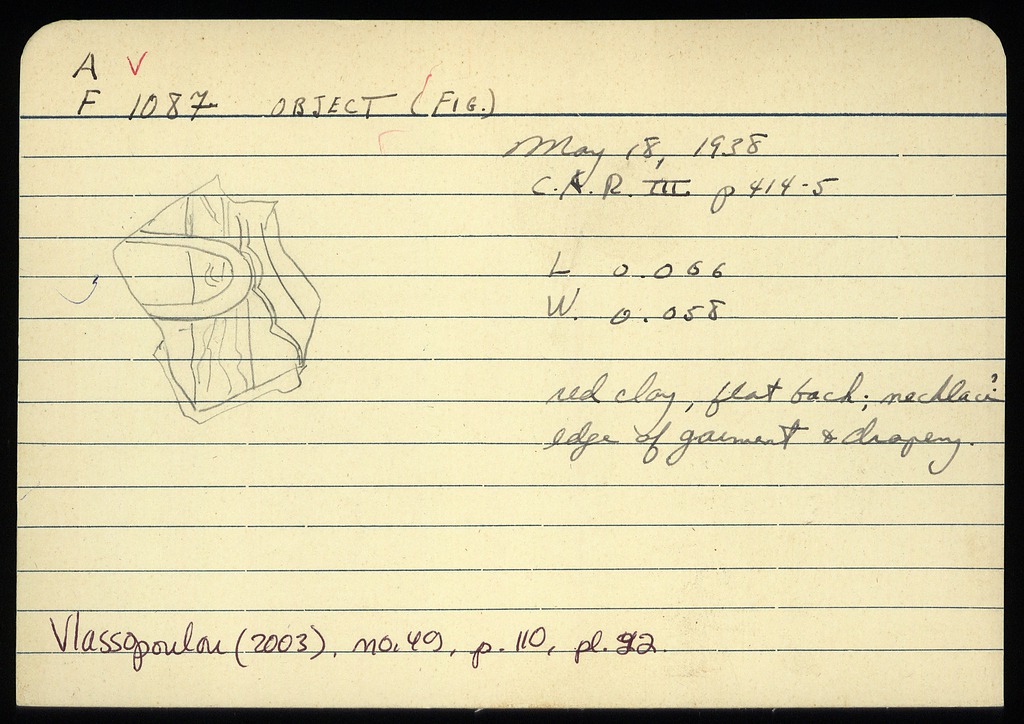 A V
F 1087 OBJECT (FIG.)
May 18, 1938
C.A.R. III. p 414-5
L 0.066
W. 0.058
red clay, flat back; necklace?
edge of garment & drapery.
Vlassopoulou (2003), no. 49, p. 110, pl.